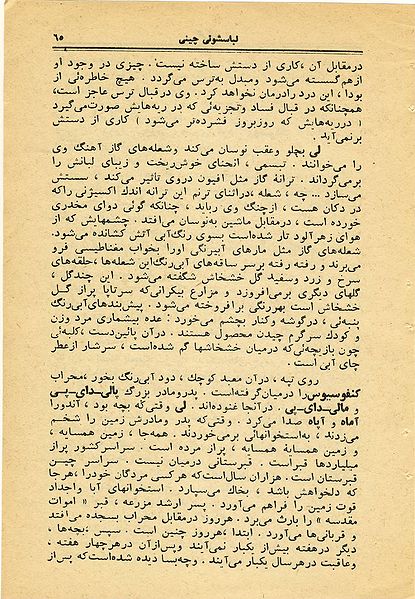 لباسشوئی چینی
٦٥
درمقابل آن ،کاری از دستش ساخته نیست . چیزی در وجود او
ازهم گسسته می‌شود ومبدل به‌ترس می‌گردد . هیچ خاطره‌ئی از
بودا ، این درد رادرمان نخواهد کرد. وی درقبال ترس عاجز است،
همچنانکه در قبال فساد وتجزیه‌ئی که در ریه‌هایش صورت‌می‌گیرد
( درریه‌هایش که روزبروز فشرده‌تر می‌شود ) کاری از دستش
برنمی‌آید .
لی بجلو وعقب نوسان می‌کند وشعله‌های گاز آهنگ وی
را می‌خوانند . تبسمی ، انحنای خوش‌ریخت و زیبای لبانش را
برمی‌گرداند . ترانهٔ گاز مثل افیون دروی تأثیر می‌کند ، سستش
می‌سازد ... چه ، شعله ،دراثنای ترنم این ترانه اندك اکسیژنی راکه
در دکان هست ، ازچنگ وی رباید ، چنانکه گوئی دوای مخدری
خورده است ، درمقابل ماشین به‌نوسان می‌افتد . چشمهایش که از
هوای زهرآلود تار شده‌است بسوی رنگ‌آبی آتش کشانده می‌شود.
شعله‌های گاز مثل مارهای آبیرنگی اورا بخواب مغناطیسی فرو
می‌برند و رفته رفته برسر ساقه‌های آبی‌رنگ‌این شعله‌ها ،حلقه‌های
سرخ و زرد وسفید گل خشخاش شگفته می‌شود . این چندگل ،
گلهای دیگری برمی‌افروزد و مزارع بیکرانی‌که سرتاپا پراز گل
خشخاش است بهررنگی برافروخته می‌شود . پیش‌بندهای‌آبی‌رنگ
پنبه‌ئی ، درگوشه وکنار بچشم می‌خورد : عده بیشماری مرد وزن
و کودك سرگرم چیدن محصول هستند . درآن پائین‌دست ،کلبه‌ئی
چون بازیچه‌ئی‌که درمیان خشخاشها گم شده‌است ، سرشار ازعطر
چای آبی است .
روی تپه ، درآن معبد کوچك ، دود آبی‌رنگ بخور ،محراب
کنفوسیوس را درمیان‌گرفته‌است . پدرومادر بزرگ پالی‌-دای‌-پی
و مالی‌-دای‌-پی . درآنجا غنوده‌اند. لی وقتی‌که بچه بود ، آندورا
آماه و آپاه صدا می‌کرد . وقتی‌که پدر ومادرش زمین را شخم
می‌زدند ، به‌استخوانهائی برمی‌خوردند . همه‌جا ، زمین همسایه ،
و زمین همسایهٔ همسایه ، پراز مرده است . سراسرکشور پراز
میلیاردها قبراست . قبرستانی درمیان نیست . سراسر چین
قبرستان است. هزاران سال‌است‌که هرکسی مردگان خودرا ،هرجا
که دلخواهش باشد ، بخاك می‌سپارد . استخوانهای آبا واجداد
قوت زمین را فراهم می‌آورد . پسر ارشد مزرعه ، قبر « اموات
مقدسه » را بارث می‌برد . هرروز درمقابل محراب بسجده می‌افتد
و قربانی‌ها می‌آورد . ابتدا ،هرروز چنین است . سپس ،بچه‌ها ،
دیگر درهفته بیش‌از یکبار نمی‌آیند وپس‌ازآن درهرچهار هفته ،
وعاقبت درهرسال یکبار می‌آیند . وچه‌بسا دیده شده‌است‌که پس‌از